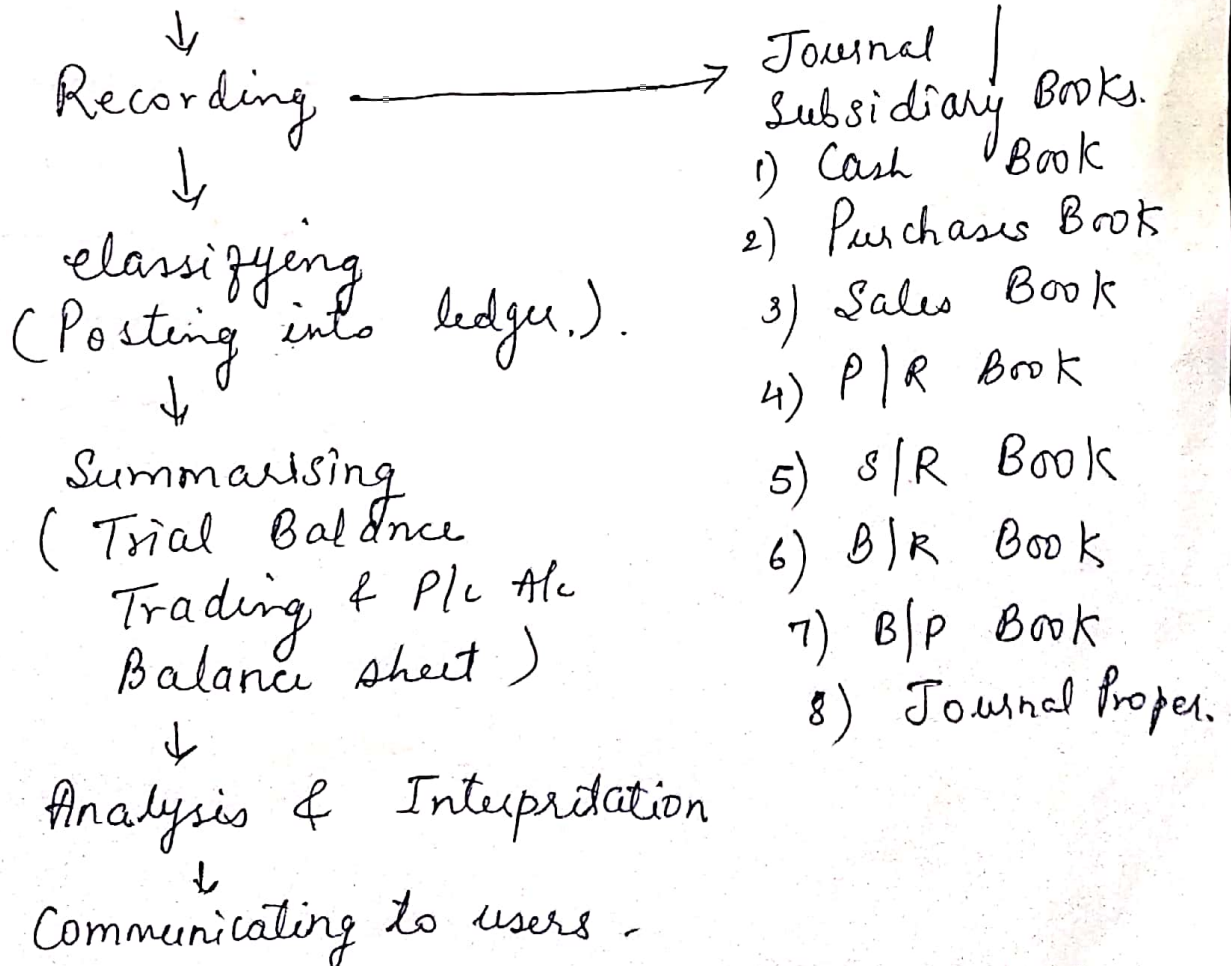 ↓
Recording →
↓
classifying
(Posting into ledger.).
↓
Summarising
( Trial Balance
Trading & P/L A/c
Balance sheet )
↓
Analysis & Interpretation
↓
Communicating to users.
Journal /
Subsidiary Books.
1) Cash Book
2) Purchases Book
3) Sales Book
4) P/R Book
5) S/R Book
6) B/R Book
7) B/P Book
8) Journal Proper.